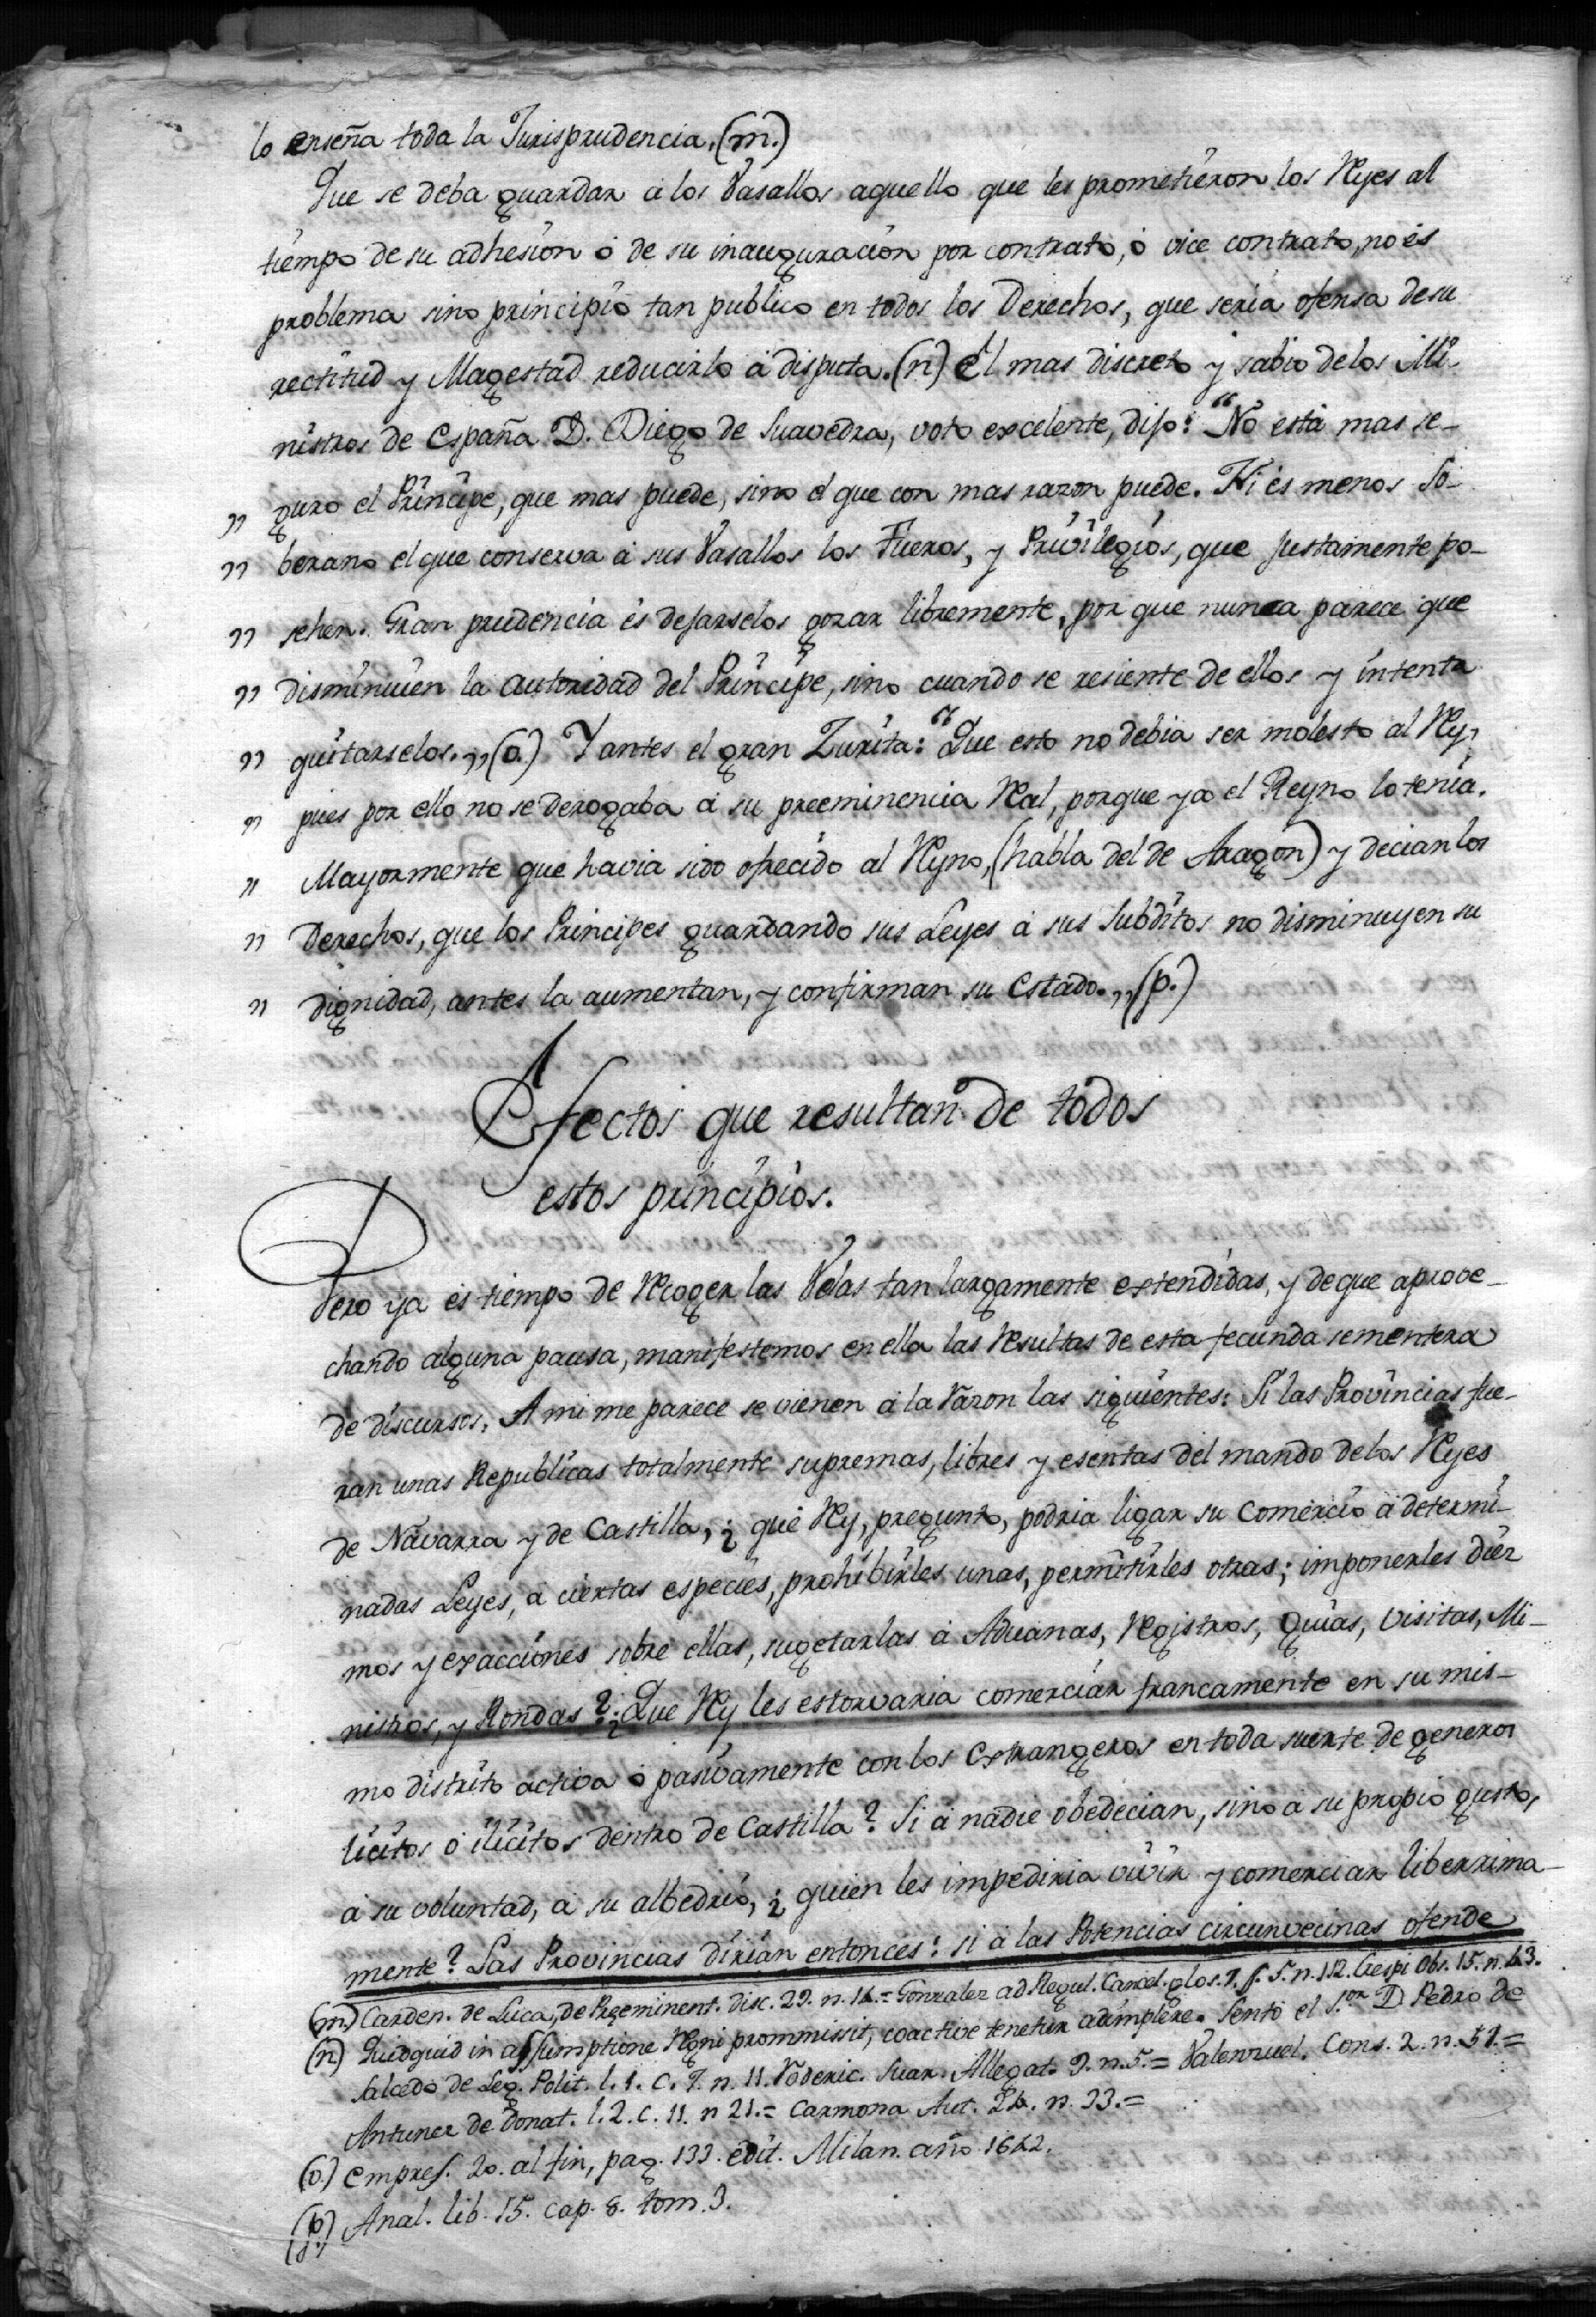 lo enseña toda la Jurisprudencia. (m.)
Que se deba guardar a los Vasallos aquello que les prometieron los Reyes al
tiempo de su adhesion ó de su inauguracion por contrato, ó vice contrato, no és
problema sino principio tan publico en todos los Derechos, que seria ofensa de su
rectitud y Magestad reducirlo á disputa. (n) El mas discreto y sabio de los Mi-
nistros de España D. Diego de Saavedra, voto excelente, dijo: “No está mas se-
„ guro el Principe, que mas puede, sino el que con mas razon puede. Ni és menos So-
„ berano el que conserva á sus Vasallos los Fueros, y Privilegios, que justamente po-
„ sehen. Gran prudencia és dejarselos gozar libremente, por que nunca parece que
„ disminuien la autoridad del Principe, sino cuando se resiente de ellos y intenta
„ quitarselos.„ (o.) Y antes el gran Zurita: “Que esto no debia ser molesto al Rey,
„ pues por ello no se derogaba á su preeminencia Real, porque ya el Reyno lo tenia.
„ Mayormente que havia sido ofrecido al Reyno, (habla del de Aragon) y decian los
„ Derechos, que los Principes guardando sus Leyes á sus Subditos no disminuyen su
„ dignidad, antes la aumentan, y confirman su Estado.„ (p.)
Efectos que resultan de todos
estos principios.
Pero ya és tiempo de Recoger las Velas tan largamente extendidas, y de que aprove-
chando alguna pausa, manifestemos en ella las Resultas de esta fecunda sementera
de discursos. A mi me parece se vienen á la Razon las siguientes: Si las Provincias fue-
ran unas Republicas totalmente supremas, libres y esentas del mando de los Reyes
de Navarra y de Castilla, ¿ que Rey, pregunto, podria ligar su Comercio á determi-
nadas Leyes, á ciertas especies, prohibirles unas, permitirles otras; imponerles diez
mos y exacciones sobre ellas, sugetarlas á Aduanas, Registros, Guias, Visitas, Mi-
nistros, y Rondas ? ¿ Que Rey les estorvaria comerciar francamente en su mis-
mo distrito activa ó pasivamente con los Extrangeros en toda suerte de generos
licitos ó ilicitos dentro de Castilla? Si á nadie obedecian, sino a su propio gusto,
á su voluntad, á su albedrio, ¿ quien les impediria vivir y comerciar liberrima-
mente? Las Provincias dirian entonces: si á las Potencias circunvecinas ofende
(m) Carden. de Luca, de Preeminent. disc. 29. n. 14. = Gonzalez ad Regul. Cancel. glos. 9. §. 5. n. 112. Crespi Obs. 15. n. 43.
(n) Quidquid in assumptione Regni prommissit, coactive tenetur adimplere. Sentó el S.or D Pedro de
Salcedo de Leg. Polit. l. 1. c. 7. n. 11. Roderic. Suar. Allegat. 9. n. 5. = Valenzuel. Cons. 2. n. 51. =
Antunez de Donat. l. 2. c. 11. n 21. = Carmona Aut. 24. n. 33. =
(o.) Empres. 20. al fin, pag. 133. edit. Milan. año 1642.
(p.) Anal. lib. 15. cap. 8. tom. 3.